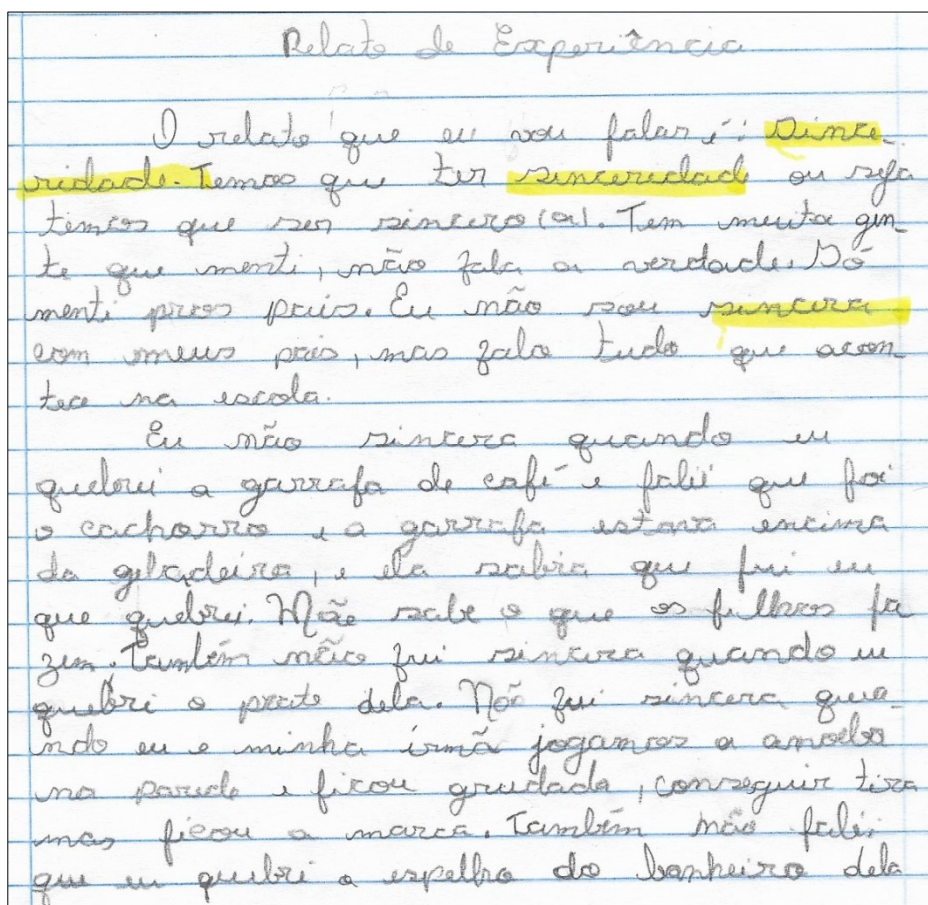 Relato de Experiência
O relato que eu vou falar é: Since-
ridade. Temos que ter sinceridade ou seja
temos que ser sincero(a). Tem muita gen-
te que menti, não fala a verdade. Só
menti pros pais. Eu não sou sincera
com meus pais, mas falo tudo que acon-
tece na escola.
Eu não sincera quando eu
quebrei a garrafa de café e falei que foi
o cachorro e a garrafa estava encima
da geladeira, e ela sabia que fui eu
que quebrei. Mãe sabe o que os filhos fa
zem. Também não fui sincera quando eu
quebri o prato dela. Não fui sincera qua-
ndo eu e minha irmã jogamos a amoeba
na parede e ficou grudada, conseguir tira
mas ficou a marca. Também não falei
que eu quebri o espelho do banheiro dela